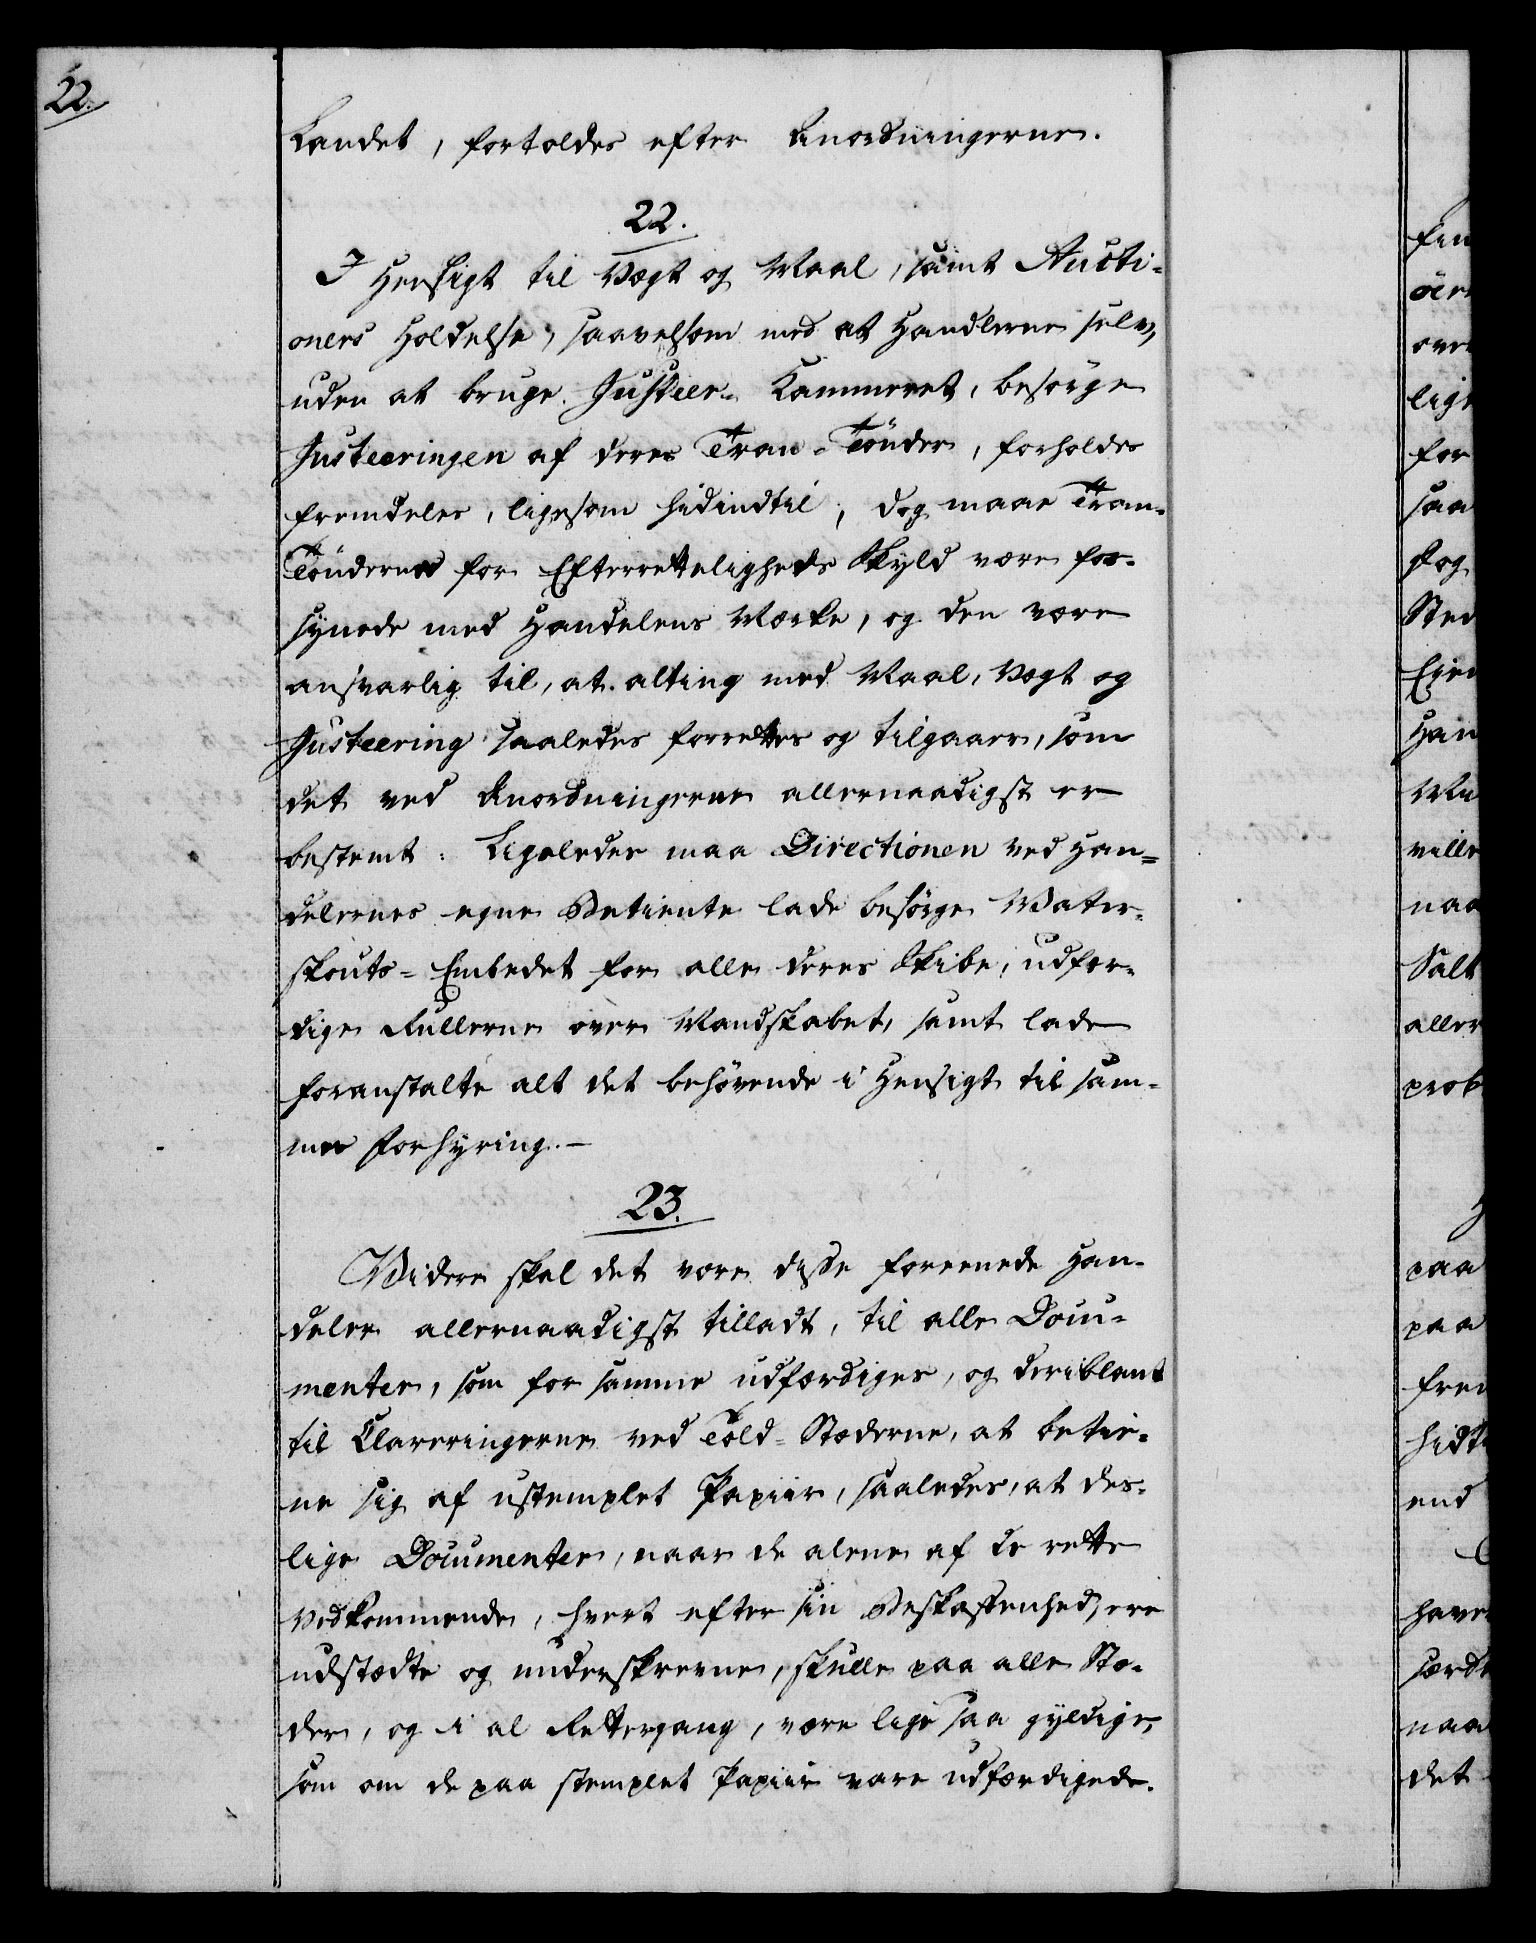 22.
Landet, fortoldes efter Anordningerne.
22.
I Hensigt til Vægt og Maal, samt Aucti-
oners Holdelse, saavelsom med at Handlerne selv,
uden at bruge Justeer-Kammeret, besørge
Justeeringen af deres Tran-Tønder, forholdes
fremdeles, ligesom hidindtil, dog maae Tran-
Tønderne for Efterrettligheds Skyld være for-
synede med Handelens Mærke, og den være
ansvarlig til, at alting med Maal, Vægt og
Justeering saaledes forrettes og tilgaaer, som
det ved Anordningerne allernaadigst er
bestemt: Ligeledes maa Directionen ved Han-
delernes egne Betiente lade besørge Water-
skouts-Embedet for alle deres Skibe, udfær-
dige Rullerne over Mandskabet, samt lade
foranstalte alt det behøvende i Hensigt til sam-
mes Forhyring. -
23.
Videre skal det være disse foreenede Han-
deler allernaadigst tilladt, til alle Docu-
menter, som for samme udfærdiges, og deriblant
til Clareringerne ved Told-Stæderne, at betie-
ne sig af ustemplet Papiir, saaledes, at des-
lige Documenter, naar de alene af de rette
Vedkommende, hvert efter sin Beskaffenhed, ere
udstædte og underskrevne, skulle paa alle Stæ-
der, og i al Rettergang, være lige saa gyldige,
som om de paa stemplet Papiir vare udfærdigede.
over
for
saa
dog
naa
Salt
paa
paa
end
naa
det